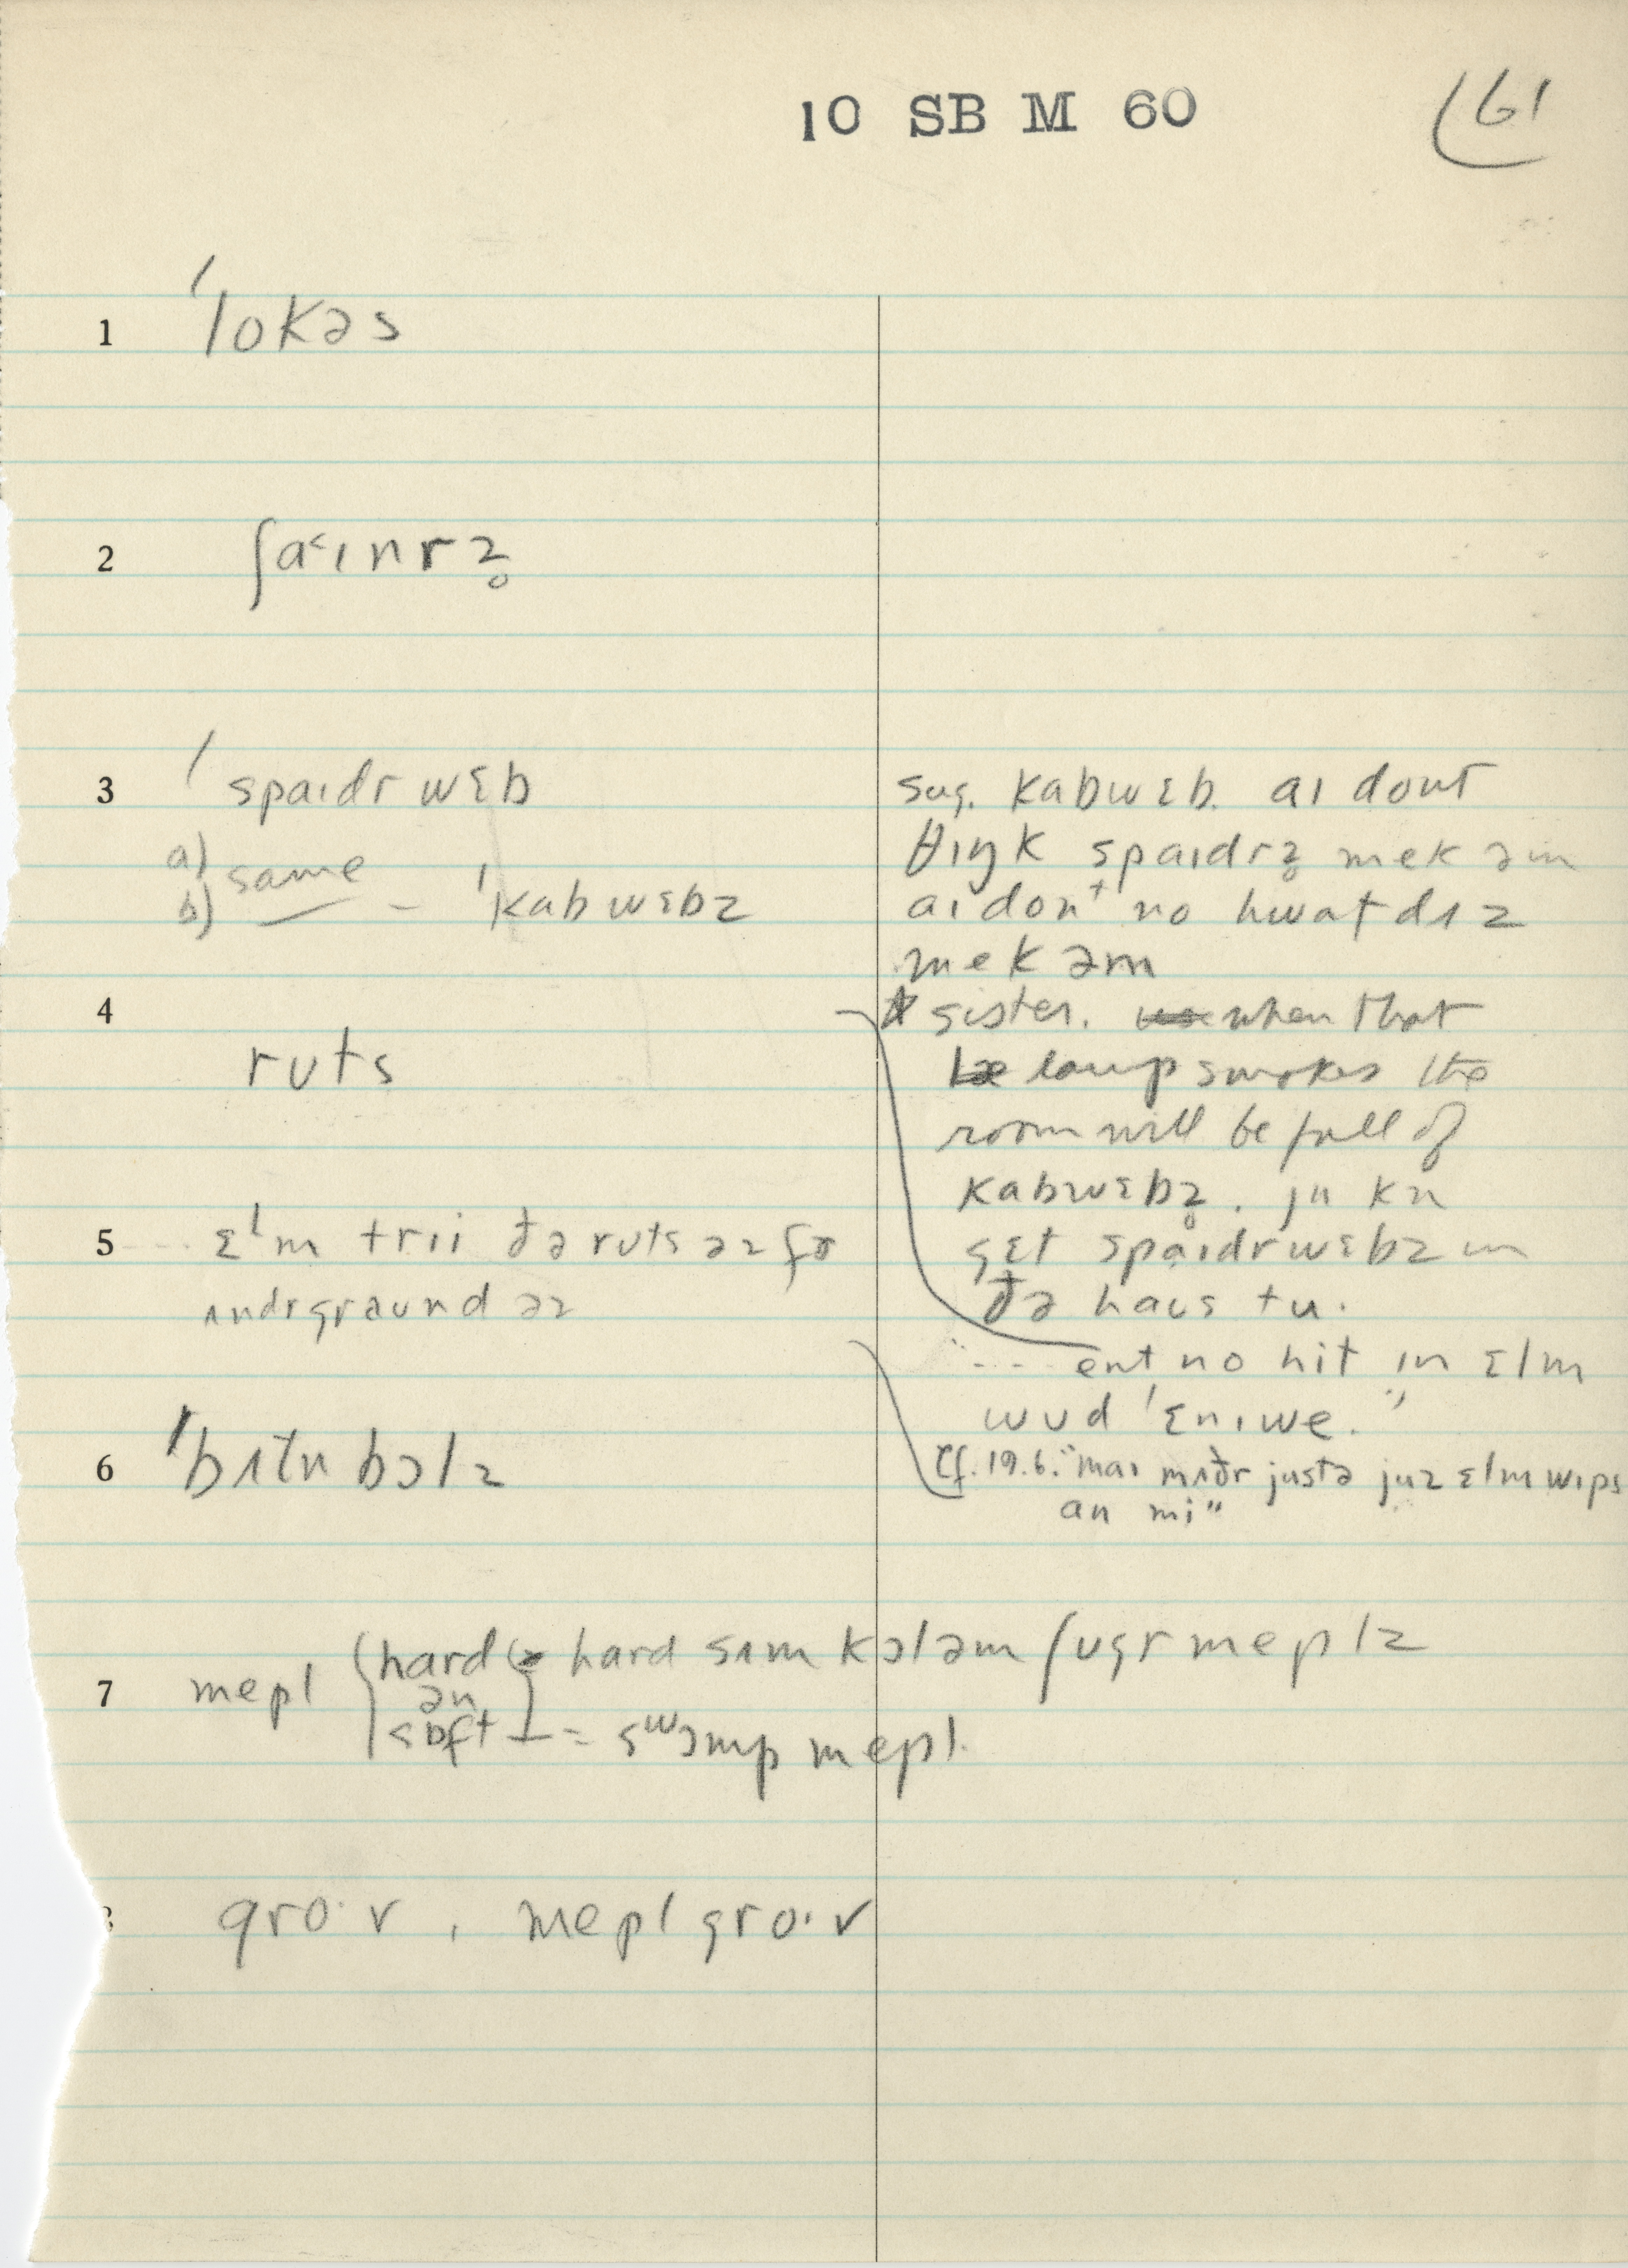 10 SB M 60
61
1 ˈlokəs
2 ʃa˂ɪnrz̥
3 ˈspaɪdrwɛb
a) same
b) – ˈkabwɛbz
sug. kabwɛb. aɪ dont
θɪŋk spaɪdrz̥ mek əm
aɪ dont no hwat dʌz
mek əm
4 ruts
sister. when that
lamp smokes the
room will be full of
kabwɛbz̥. ju kn
gɛt spaɪdrwɛbz ɪn
ðə haus tu.
5 ---- ɛˈm trii ðə ruts əz
ʌndrgraund əz
---- ent no hit ɪn ɛlm
wud ˈɛnɪwe."
6 ˈbʌtn bɔlz
Cf. 19.6. "maɪ mʌðr justə juz ɛlm wɪps
an mi"
7 mepl hard = hard sʌm kɔl əm ʃugr meplz
ən
sɒft = swɔmp mepl.
gro·v, mepl gro·v